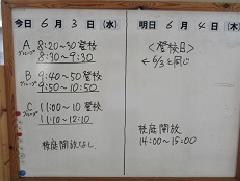 今日 6月 3日(水)
A グループ 8:20〜30 登校
8:30〜9:30
B グループ 9:40〜50 登校
9:50〜10:50
C グループ 11:00〜10 登校
11:10〜12:10
校庭開放なし
明日 6月 4日(木)
〈登校日〉
←6/3と同じ
校庭開放
14:00〜15:00